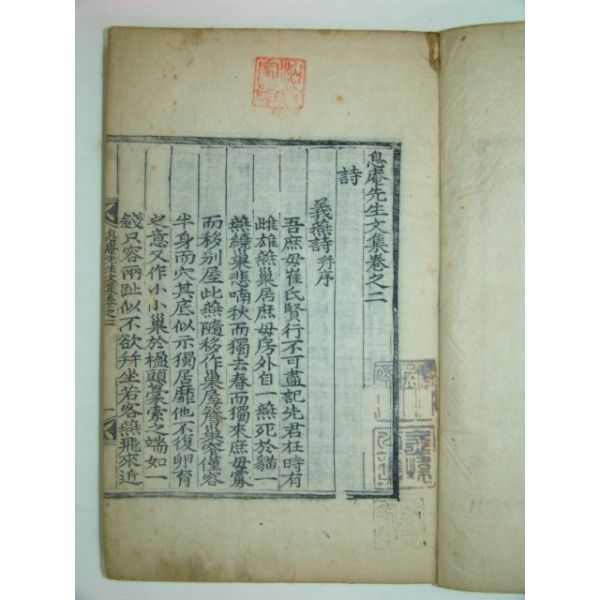 息庵先生文集卷之二
詩
義燕詩并序
吾庶母崔氏賢行不可盡記先君在時有
雌雄燕巢居庶母房外自一燕死於貓一
燕繞巢悲喃秋而獨去春而獨來庶母寡
而移別屋此燕隨移作巢屋簷巢窄僅容
半身而穴其底似示獨居靡他不復卵育
之意又作小小巢於楹頭藁索之端如一
錢只容兩趾似不欲幷坐若客燕飛來近
息庵先生文集卷之二
一